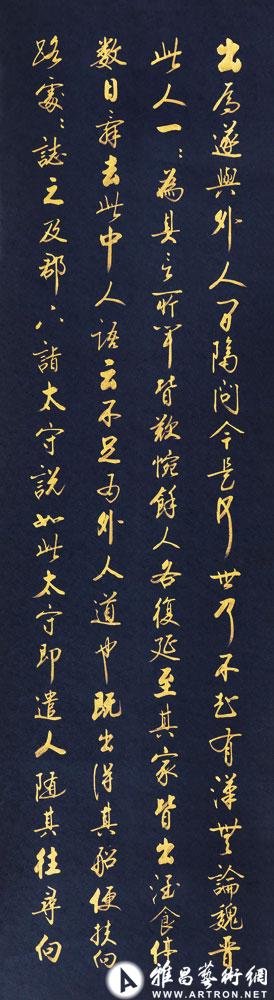 出焉遂與外人间隔问今是何世乃不知有漢無論魏晋
此人一:為具言所闻皆歎惋餘人各復延至其家皆出酒食停
数日辭去此中人語云不足为外人道也既出得其船便扶向
路處:誌之及郡下詣太守説如此太守即遣人随其往尋向
雅昌藝術網
WWW.ARTRON.NET